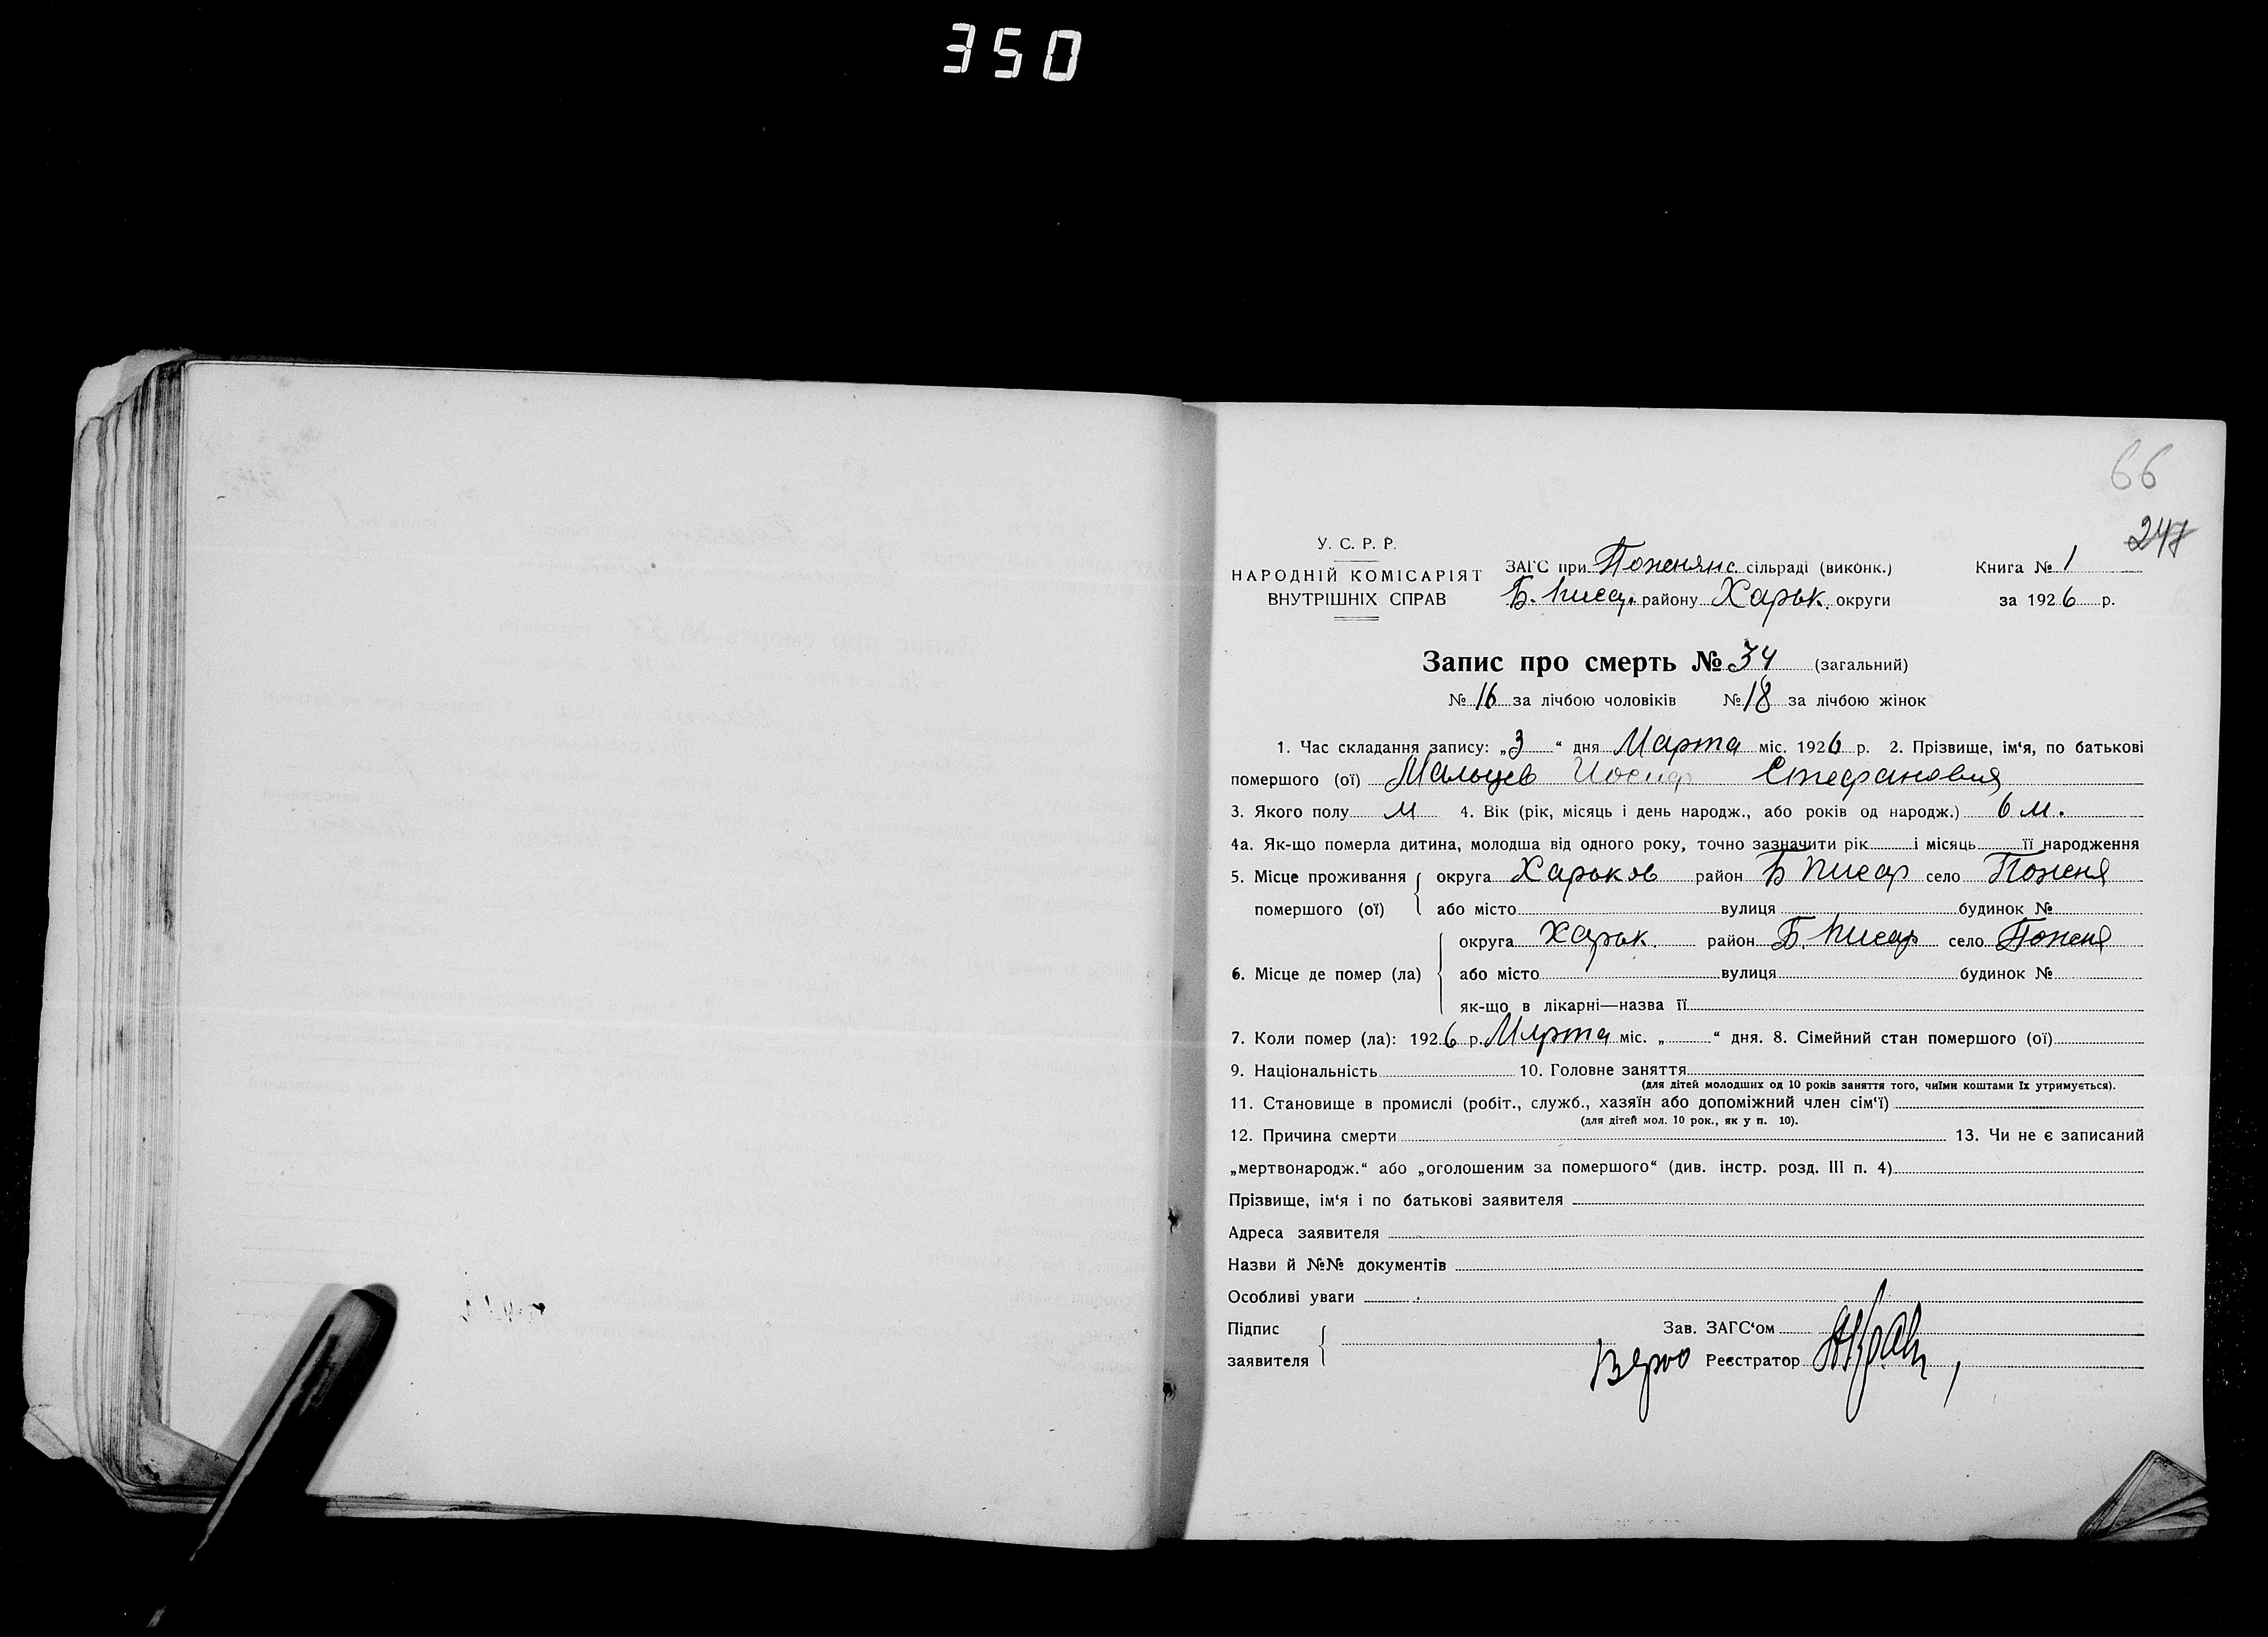 350
66
247
У. С. Р. Р.
НАРОДНІЙ КОМІСАРІЯТ
ВНУТРІШНІХ СПРАВ
ЗАГС при Поженянс. сільраді (виконк.) Книга № 1
Б. Писар. району Харьк. округи за 1926 р.
Запис про смерть № 34 (загальний)
№ 16 за лічбою чоловіків № 18 за лічбою жінок
1. Час складання запису: „3“ дня Марта міс. 1926 р. 2. Прізвище, ім‘я, по батькові
помершого (ої) Мальцев Иосиф Стефанович
3. Якого полу М 4. Вік (рік, місяць і день народж., або років од народж.) 6 м.
4а. Як-що померла дитина, молодша від одного року, точно зазначити рік і місяць її народження
5. Місце проживання помершого (ої) округа Харьков район Б Писар село Поженя
або місто вулиця будинок №
6. Місце де помер (ла) округа Харьк. район Б. Писар село Поженя
або місто вулиця будинок №
як-що в лікарні—назва її
7. Коли помер (ла): 1926 р. Марта міс. „ “ дня. 8. Сімейний стан помершого (ої)
9. Національність 10. Головне заняття
(для дітей молодших од 10 років заняття того, чиїми коштами їх утримується).
11. Становище в промислі (робіт., служб., хазяїн або допоміжний член сім‘ї)
(для дітей мол. 10 рок., як у п. 10).
12. Причина смерти 13. Чи не є записаний
„мертвонародж.“ або „оголошеним за помершого“ (див. інстр. розд. III п. 4)
Прізвище, ім‘я і по батькові заявителя
Адреса заявителя
Назви й №№ документів
Особливі уваги
Підпис Зав. ЗАГС‘ом
заявителя Верно Реєстратор